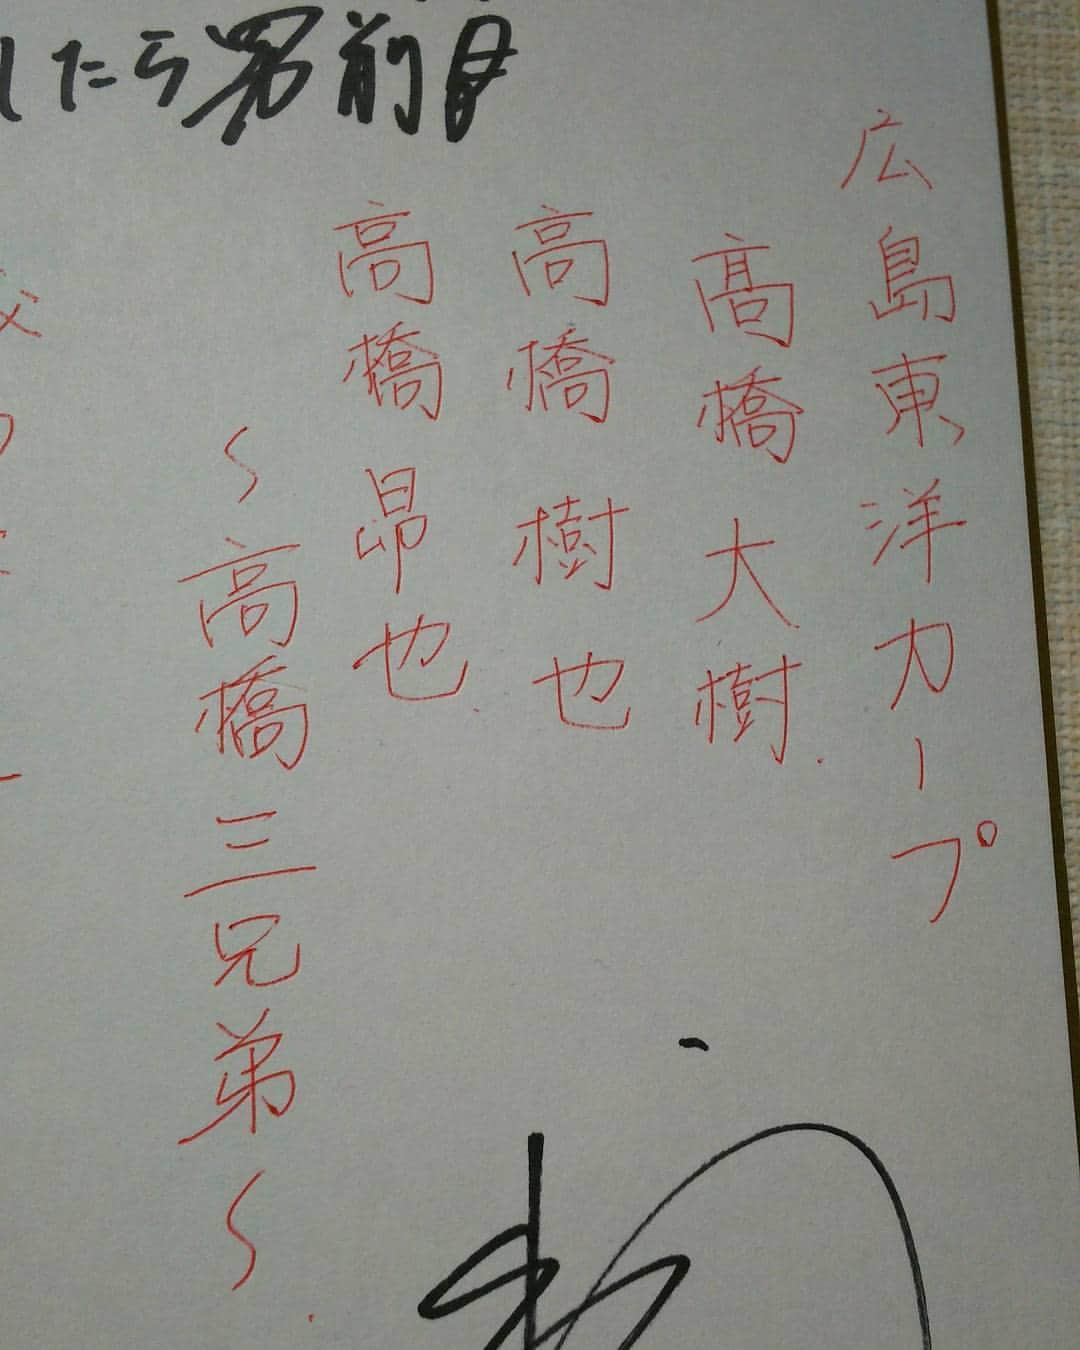 したら男前
広島東洋カープ
髙橋大樹
高橋樹也
高橋昂也
〜高橋三兄弟〜